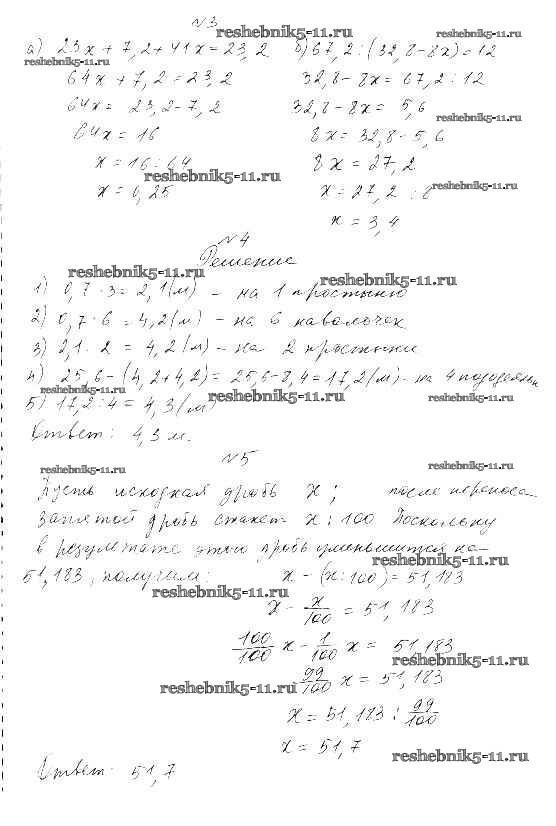 №3
reshebnik5-11.ru
а) 23х + 7,2 + 41х = 23,2
reshebnik5-11.ru
64х + 7,2 = 23,2
64х = 23,2 - 7,2
64х = 16
х = 16 : 64
х = 0,25
reshebnik5-11.ru
б) 67,2 : (32,8 - 8х) = 12
reshebnik5-11.ru
32,8 - 8х = 67,2 : 12
32,8 - 8х = 5,6
reshebnik5-11.ru
8х = 32,8 - 5,6
8х = 27,2
х = 27,2 : 8
reshebnik5-11.ru
х = 3,4
№4
Решение
reshebnik5-11.ru
reshebnik5-11.ru
1) 0,7 · 3 = 2,1 (м) - на 1 простыню
2) 0,7 · 6 = 4,2 (м) - на 6 наволочек
3) 2,1 · 2 = 4,2 (м) - на 2 простыни
4) 25,6 - (4,2 + 4,2) = 25,6 - 8,4 = 17,2 (м) - на 4
reshebnik5-11.ru
reshebnik5-11.ru
reshebnik5-11.ru
5) 17,2 : 4 = 4,3 (м)
Ответ: 4,3 м.
№5
reshebnik5-11.ru
reshebnik5-11.ru
Пусть исходная дробь х; после переноса
запятой дробь станет х : 100 Поскольку
в результате этого дробь уменьшится на
reshebnik5-11.ru
51,183, получим: х - (х : 100) = 51,183
reshebnik5-11.ru
х - х/100 = 51,183
100/100 х - 1/100 х = 51,183
reshebnik5-11.ru
99/100 х = 51,183
reshebnik5-11.ru
х = 51,183 : 99/100
х = 51,7
reshebnik5-11.ru
Ответ: 51,7